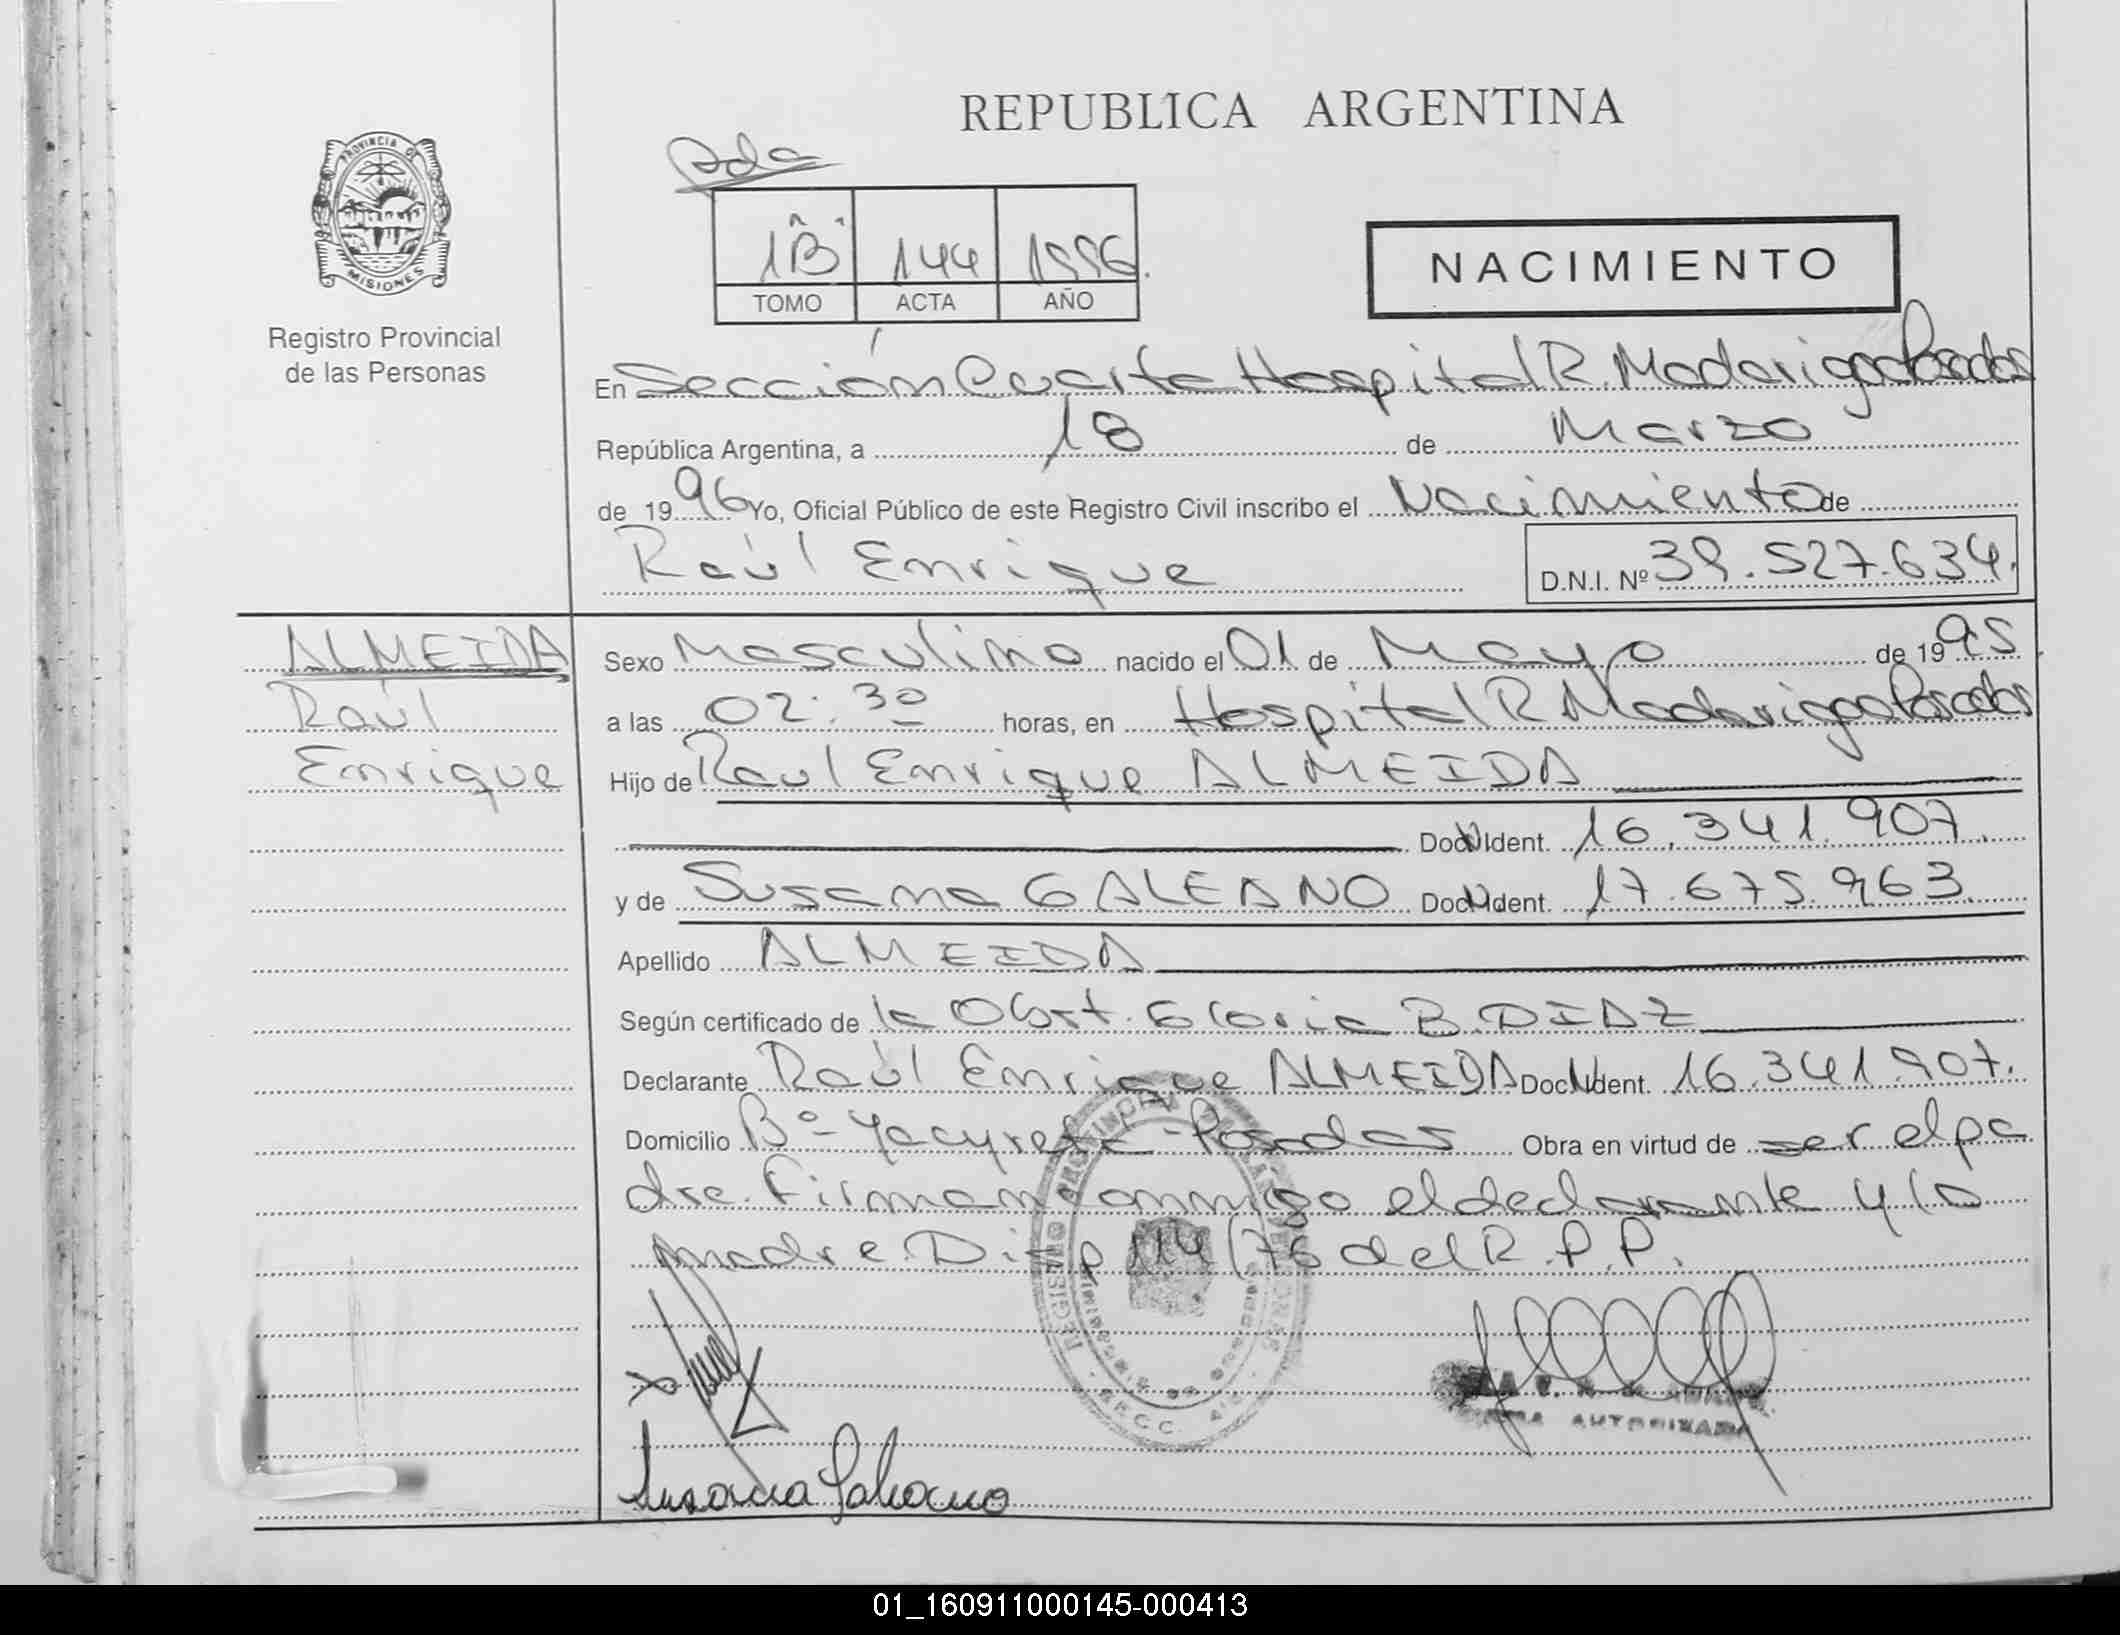 REPUBLICA ARGENTINA
PROVINCIA DE
MISIONES
Registro Provincial
de las Personas
1ª "B" 144 1996.
TOMO ACTA AÑO
NACIMIENTO
En Sección Cuarta Hospital R. Madariaga Posadas
República Argentina, a 18 de Marzo
de 1996 Yo, Oficial Público de este Registro Civil inscribo el Nacimiento de
Raúl Enrique D.N.I. Nº 39.527.634.
ALMEIDA
Raúl
Enrique
Sexo Masculino nacido el 01 de Mayo de 1995
a las 02:30 horas, en Hospital R Madariaga Posadas
Hijo de Raul Enrique ALMEIDA
Doc. Ident. 16.341.907.
y de Susana GALEANO Doc. Ident. 17.675.963.
Apellido ALMEIDA
Según certificado de la Obst. Gloria B. DIAZ
Declarante Raúl Enrique ALMEIDA Doc. Ident. 16.341.907.
Domicilio Bº Yacyreta - Posadas Obra en virtud de ser el pa
dre. Firman conmigo el declarante y la
madre. Disp 114/76 del R.P.P.
AUTORIZADA
Susana Galeano
01_160911000145-000413